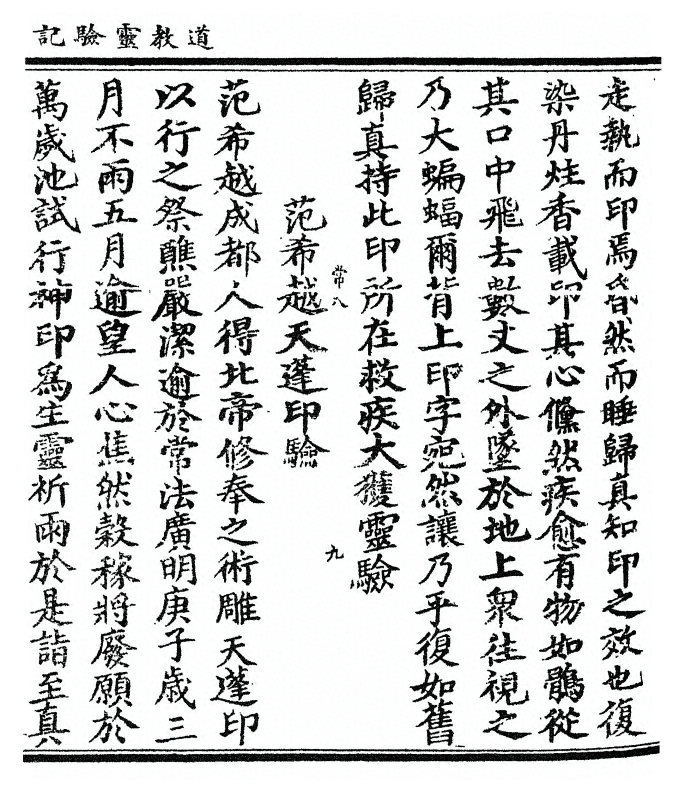 道教靈驗記
走執而印焉昏然而睡歸真知印之效也復
染丹炷香載印其心儻然疾愈有物如鶻從
其口中飛去數丈之外墜於地上衆往視之
乃大蝙蝠爾背上印字宛然讓乃平復如舊
歸真持此印所在救疾大獲靈驗
常八
九
范希越天蓬印驗
范希越成都人得北帝修奉之術雕天蓬印
以行之祭醮嚴潔逾於常法廣明庚子歲三
月不雨五月逾望人心焦然穀稼將廢願於
萬歲池試行神印爲生靈祈雨於是詣至真